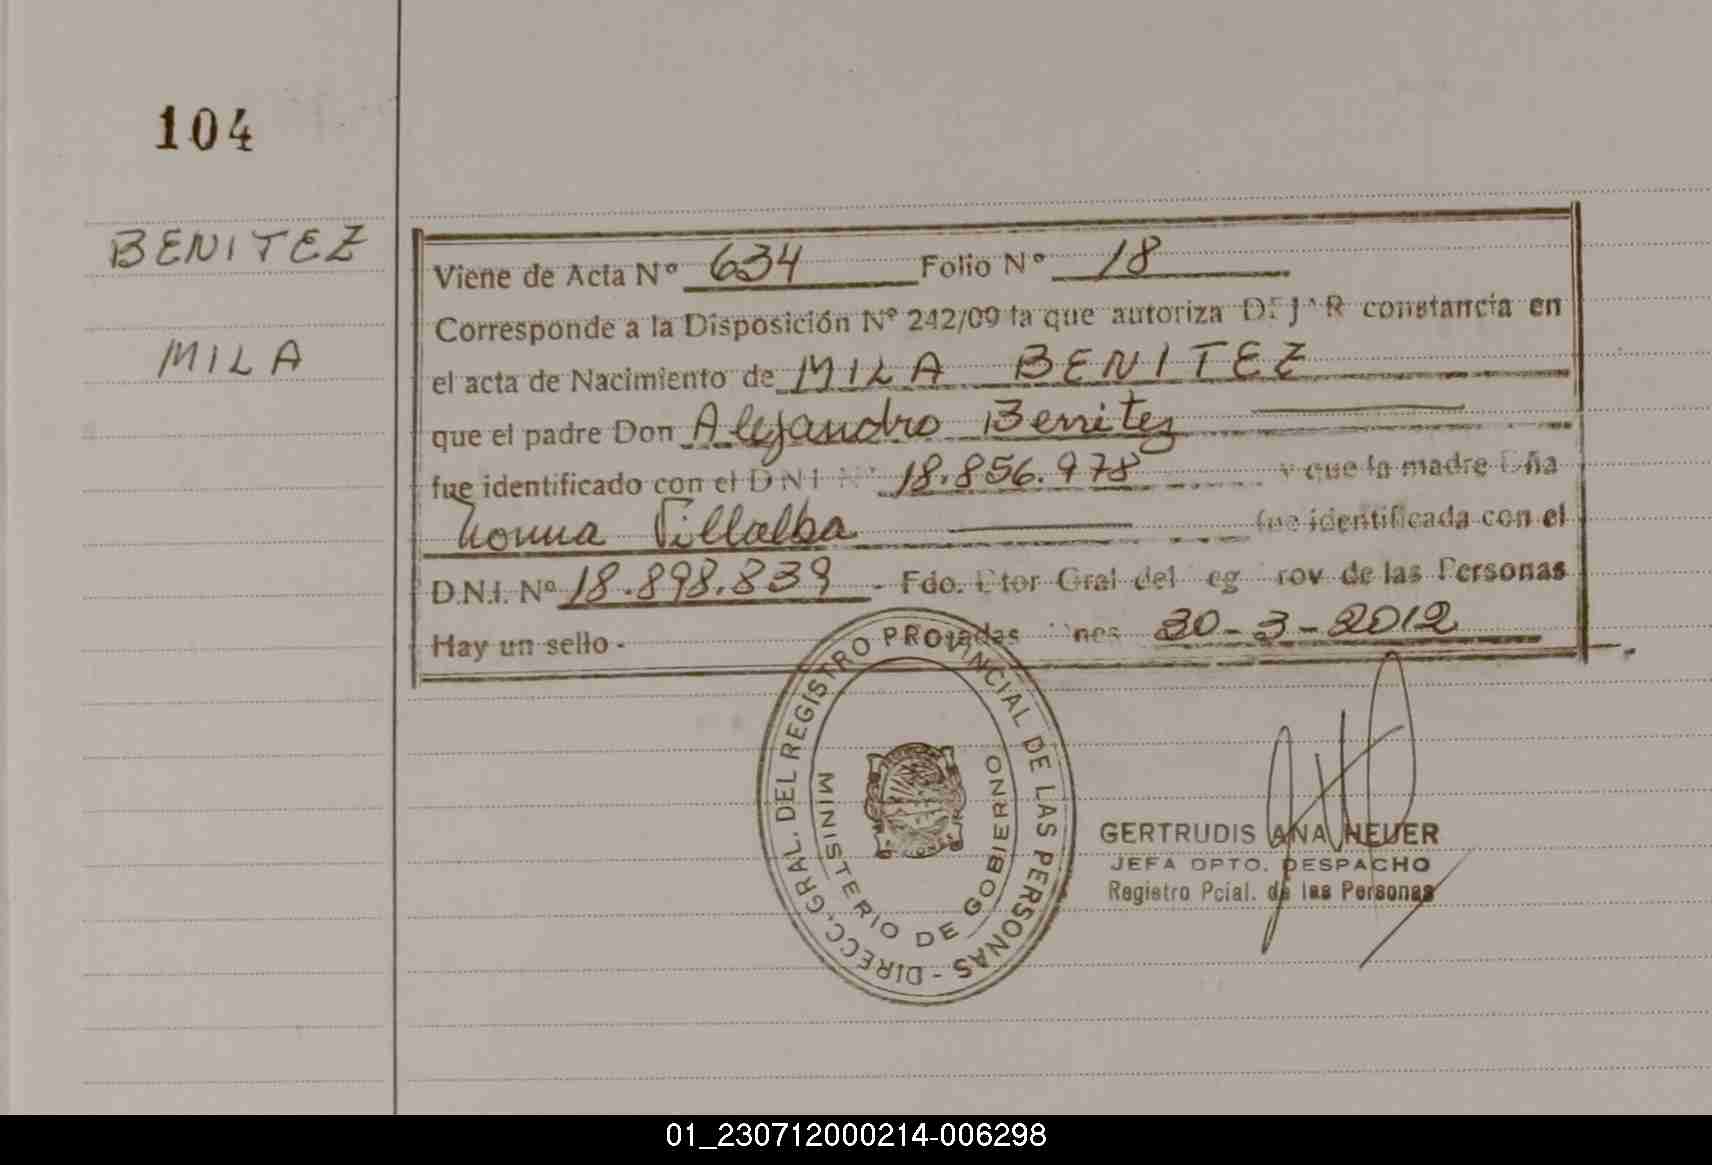 104
BENITEZ
MILA
Viene de Acta Nº 634 Folio Nº 18
Corresponde a la Disposición Nº 242/09 la que autoriza DEJAR constancia en
el acta de Nacimiento de MILA BENITEZ
que el padre Don Alejandro Benitez
fue identificado con el D N I Nº 18.856.978 y que la madre Dña
Villalba fue identificada con el
D.N.I. Nº 18.898.839 - Fdo. Dtor Gral del eg rov de las Personas
Hay un sello - 30-3-2012
DIRECC. GRAL. DEL REGISTRO PROVINCIAL DE LAS PERSONAS -
MINISTERIO DE GOBIERNO
GERTRUDIS ANA NEUER
JEFA DPTO. DESPACHO
Registro Pcial. de las Personas
01_230712000214-006298